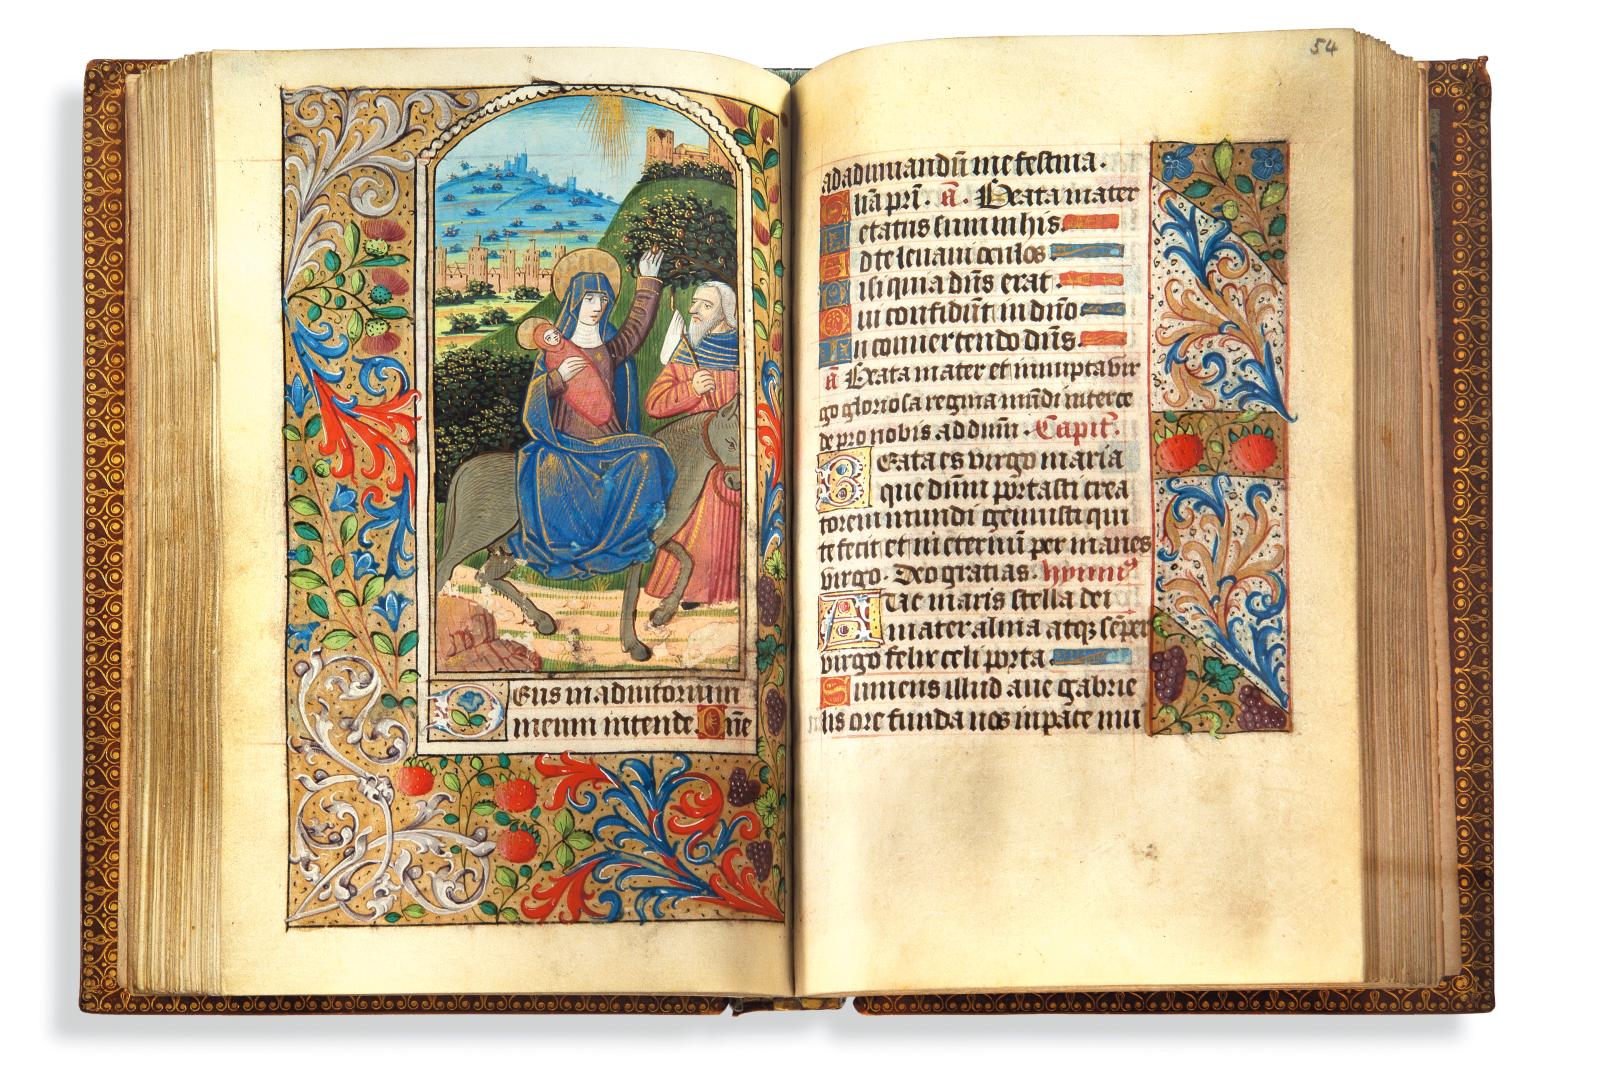 54
Deus in adiutorium
meum intende. Dn̄e
ad adiuuandū me festina.
Glīa pr̄i. ā. Beata mater
Letatus sum in his.
Ad te leuaui oculos
Nisi quia dn̄s erat.
Qui confidūt in dn̄o
In conuertendo dn̄s.
ā Beata mater et innupta vir
go gloriosa regina mūdi interce
de pro nobis ad dn̄m. Capit̄.
Beata es virgo maria
que dn̄m portasti crea
torem mundi genuisti qui
te fecit et in eternū permanes
virgo. Deo gratias. hymnꝰ
Aue maris stella dei
mater alma atqꝫ sēper
virgo felix celi porta
Sumens illud aue gabrie
lis ore funda nos in pace mu